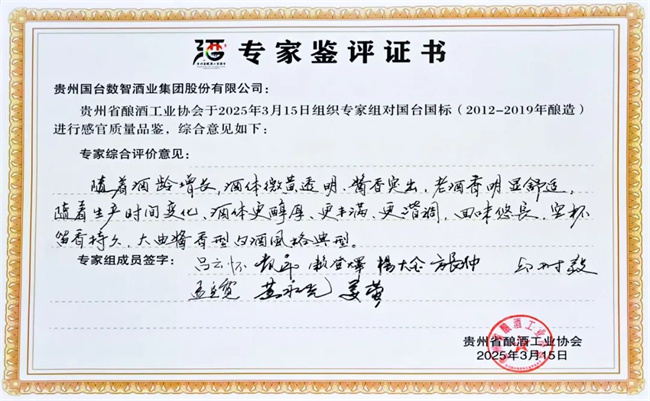 专家鉴评证书
贵州国台数智酒业集团股份有限公司：
贵州省酿酒工业协会于2025年3月15日组织专家组对国台国标（2012-2019年酿造）
进行感官质量品鉴，综合意见如下：
专家综合评价意见：
随着酒龄增长，酒体微黄透明、酱香突出，老酒香明显舒适，
随着生产时间变化，酒体更醇厚、更丰满、更谐调，回味悠长，空杯
留香持久，大曲酱香型白酒风格典型。
专家组成员签字：吕云怀
贵州省酿酒工业协会
2025年3月15日